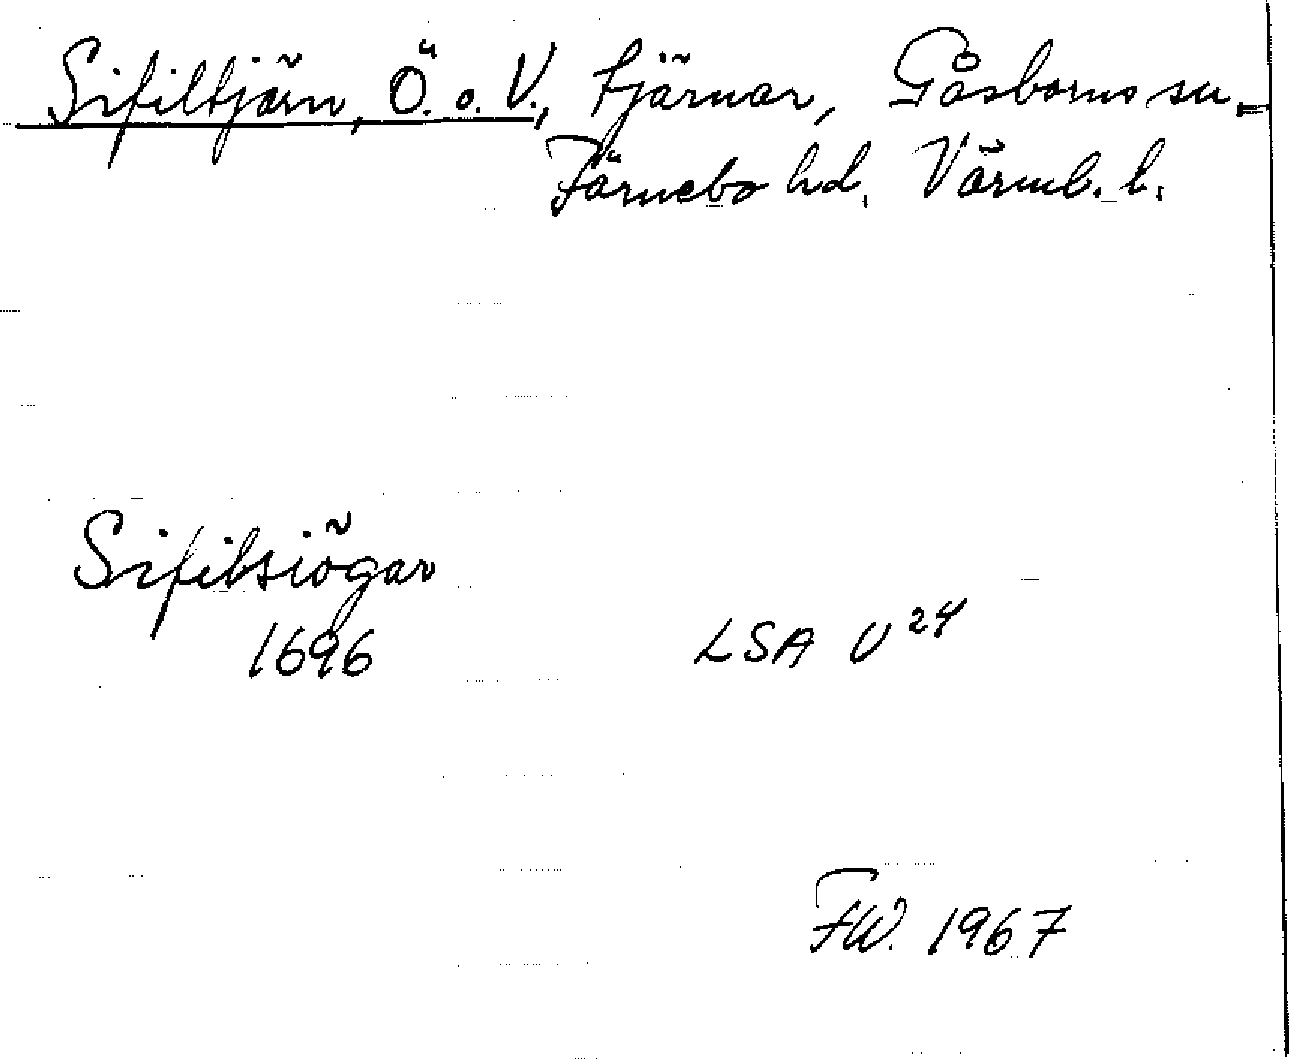 Sifiltjärn, Ö. o. V., tjärnar, Gåsborns sn.
Färnebo hd. Värml. l.
Sifilsiögar
1696 LSA U 24
FW. 1967